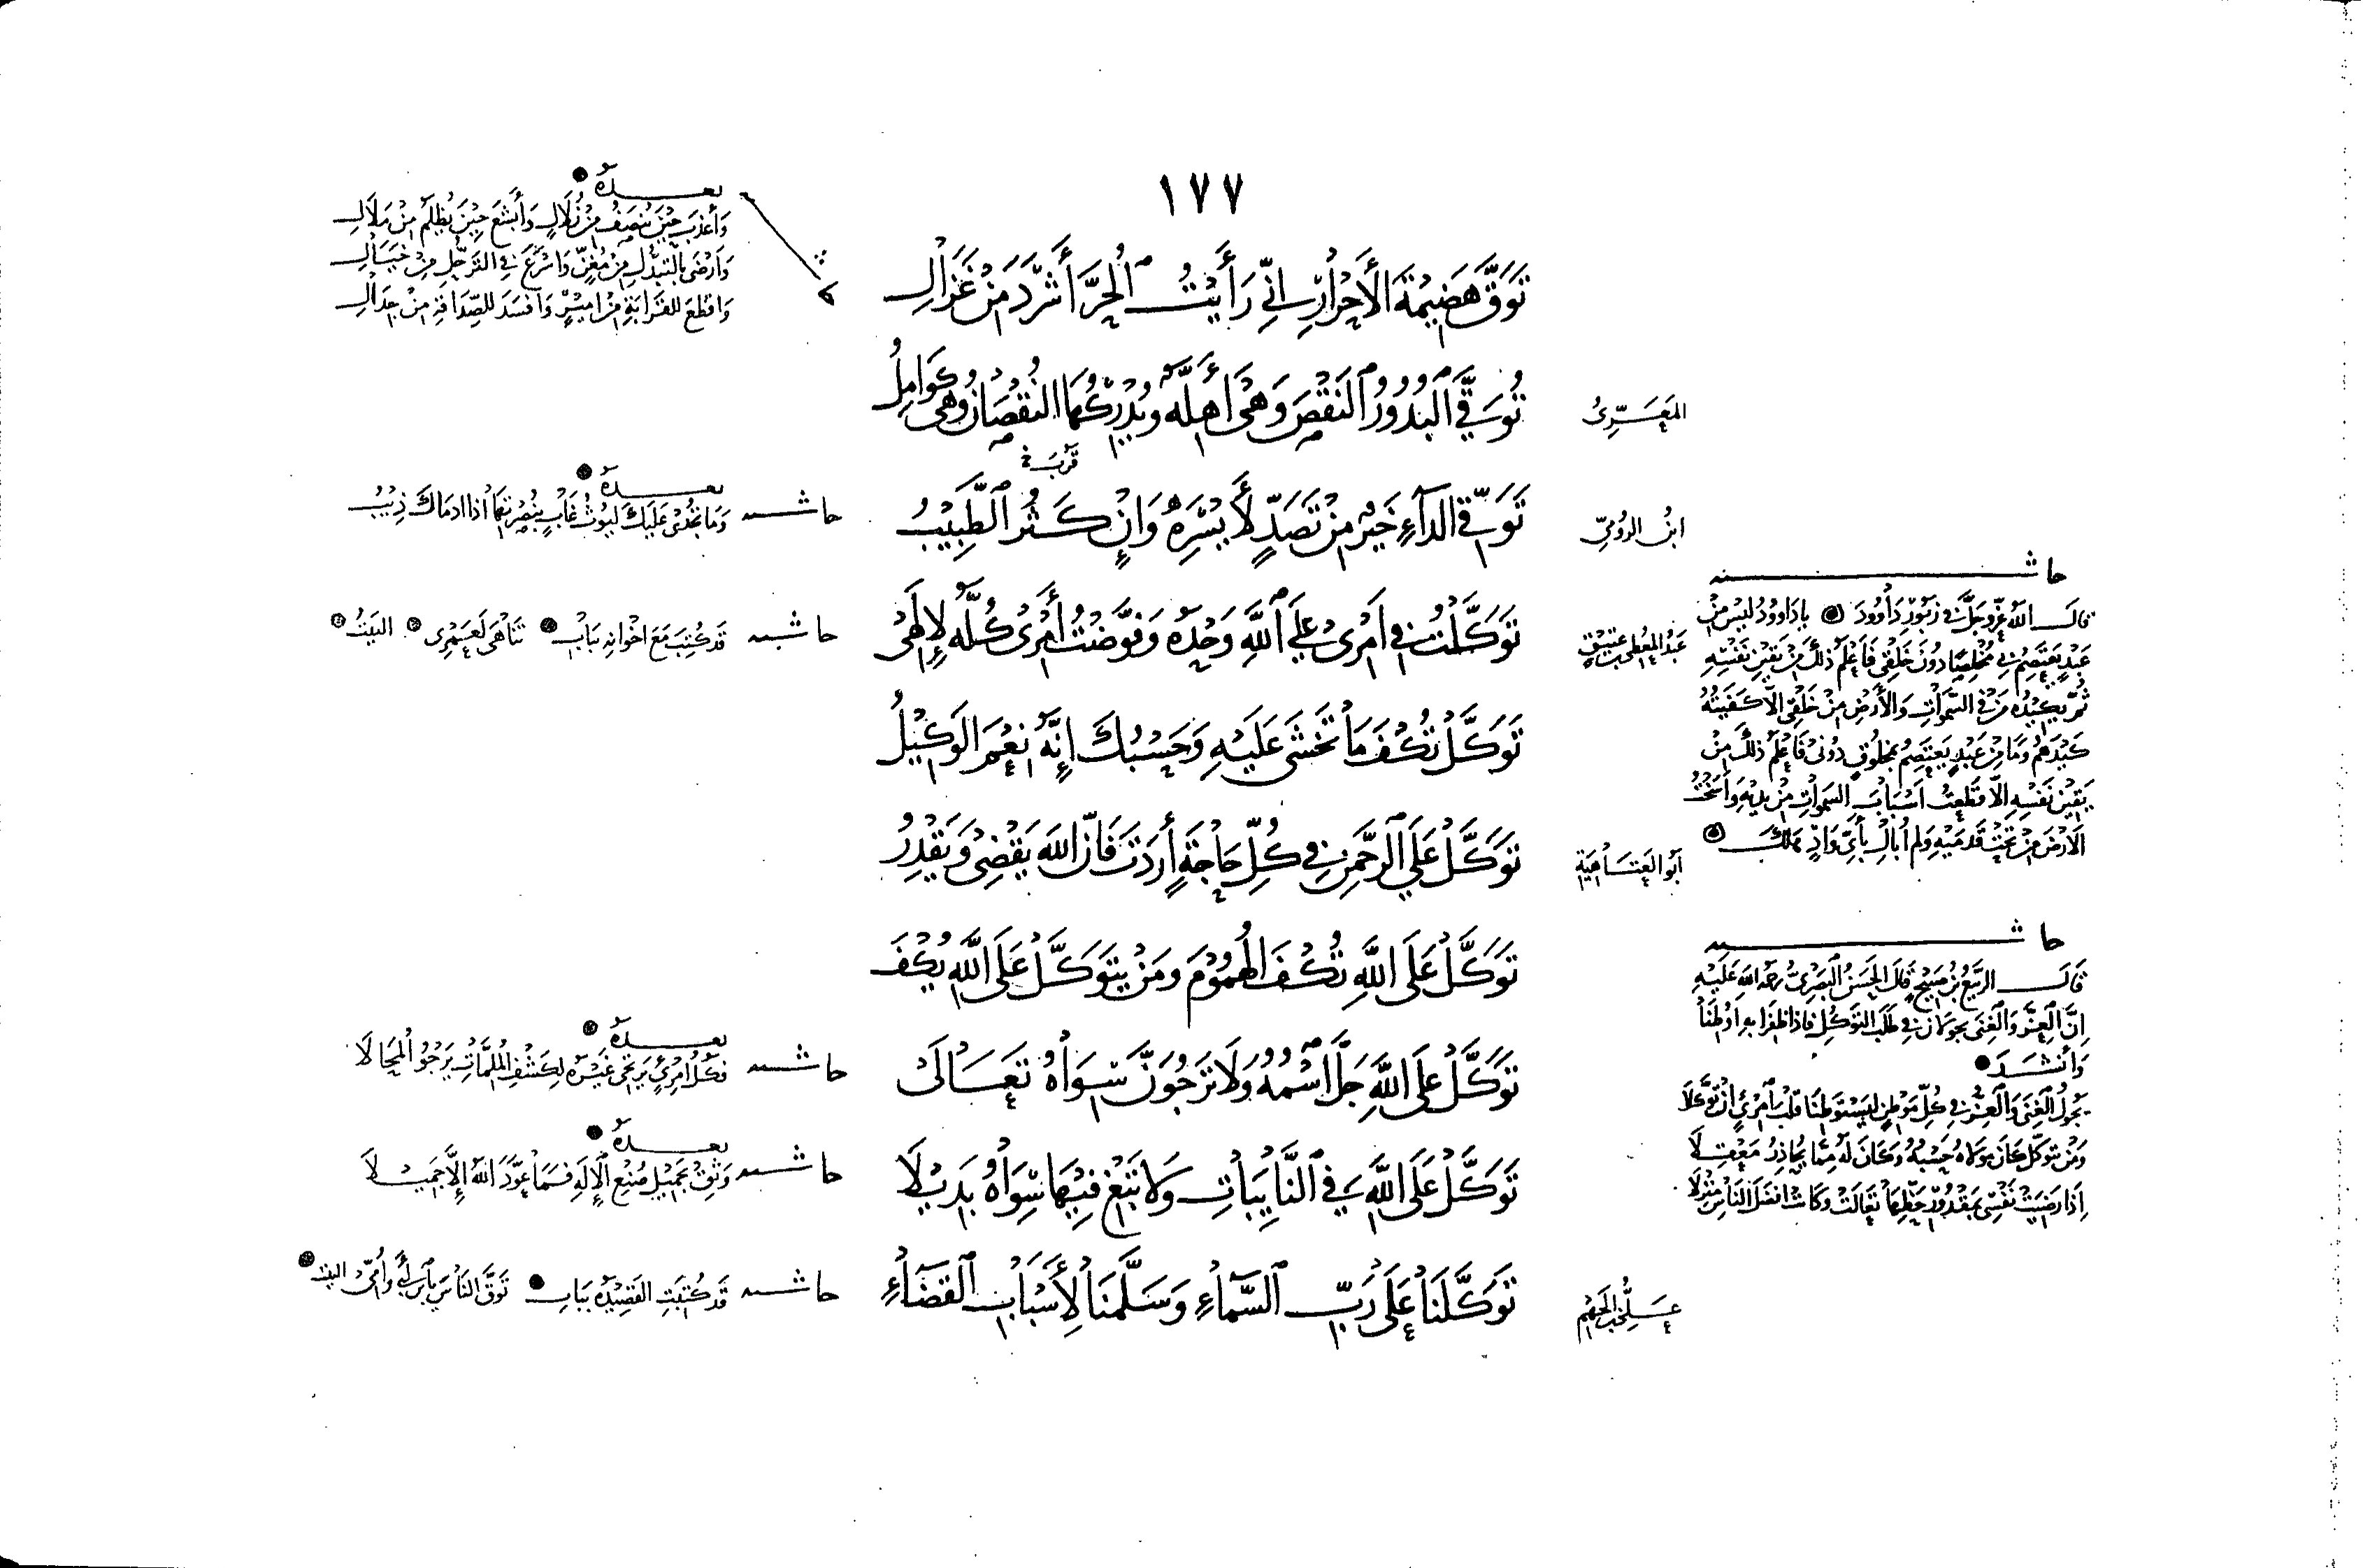 ١٧٧
تَوَقَّ هَضِيمَةَ الأَحْرَارِ إِنِّي رَأَيْتُ الْحُرَّ أَشْرَدَ مِنْ غَزَالِ
بعده
وَأَعْذَبَ حِينَ يُنصَفُ مِنْ زُلَالٍ وَأَبْشَعَ حِينَ يُظلَمُ مِنْ مَلَالِ
وَأَرْضَى بِالتَّبَذُّلِ مِنْ مُغِنٍّ وَأَسْرَعَ فِي التَّرَحُّلِ مِنْ خَيَالِ
وَاقْطَعَ لِلقَرَابَةِ مِنْ وَأَفْسَدَ لِلصَّدَاقَةِ مِنْ جِدَالِ
المَعَرِّيُّ
تُوَقَّى الْبُدُورُ النَّقْصَ وَهْيَ أَهِلَّةٌ وَيُدْرِكُهَا النُّقْصَانُ وَهْيَ كَوَامِلُ
ابْنُ الرُّومِيِّ
تَوَقِّي الدَّاءِ خَيْرٌ مِنْ تَصَدٍّ لأَيْسَرِهِ وَإِنْ كَثُرَ الطَّبِيبُ
قَرُبَ خ
حاشيه
بعده
وَمَا تُجْدِي عَلَيْكَ لُيُوثُ غَابٍ بِنُصْرَتِهَا إِذَا ادمَاكَ ذِيْبُ
عَبْدُ المُعْطِي بْن عَتِيقٍ
تَوَكَّلْتُ فِي أَمْرِي عَلَى اللَّهِ وَحْدَهُ وَفَوَّضْتُ أَمْرِي كُلَّهُ لِإِلَهِي
حاشيه قَدْ كُتِبَ مَعَ اخْوَانِهِ بِبَابِ تَنَاهَى لَعَمْرِي البَيْتُ
تَوَكَّلْ تُكْفَ مَا تَخْشَى عَلَيْهِ وَحَسْبُكَ إِنَّهُ نِعْمَ الوَكِيْلُ
أَبُو العَتَاهِيَةِ
تَوَكَّلْ عَلَى الرَّحْمَنِ فِي كُلِّ حَاجَةٍ أَرَدْتَ فَإِنَّ اللَّهَ يَقْضِي وَيَقْدِرُ
تَوَكَّلْ عَلَى اللَّهِ تُكْفَ الْهُمُوْمَ وَمَنْ يَتَوَكَّلْ عَلَى اللَّهِ يُكْفَ
تَوَكَّلْ عَلَى اللَّهِ جَلَّ اسْمُهُ وَلَا تَرْجُوَنَّ سِوَاهُ تَعَالَى
حاشيه
بعده
فَكُلُّ امْرِئٍ يَرْتَجِي غَيْرَهُ لِكَشْفِ الْمُلِمَّاتِ يَرْجُو الْمحَالَا
تَوَكَّلْ عَلَى اللَّهِ فِي النَّايِبَاتِ وَلَا تَبْغِ فِيْهَا سِوَاهُ بَدِيْلَا
حاشيه
بعده
وَثِقْ بِجَمِيْلِ صُنْعِ الإِلَهِ فَمَا عَوَّدَ اللَّهُ إِلَّا جَمِيْلَا
عَلِيُّ بْنُ الجَهْمِ
تَوَكَّلْنَا عَلَى رَبِّ السَّمَاءِ وَسَلَّمْنَا لِأَسْبَابِ الْقَضَاءِ
حاشيه قَدْ كُتِبَتِ القَصِيْدَةُ بِبَابِ تَوَقَّ النَّاسَ يَا بْنَ أَبِي وَأُمِّي البيت
حاشيه
قَالَ اللَّهُ عَزَّ وَجَلَّ فِي زَبُوْرِ دَاوُودَ يَا دَاوُودُ لَيْسَ مِنْ
عَبْدٍ يَعْتَصِمُ بِي مُخْلِصًا دُوْنَ خَلْقِي فَأَعْلَمُ ذَلِكَ مِنْ يَقِيْنِ نَفْسِهِ
ثُمَّ يَكِيْدُهُ مَنْ فِي السَّمَوَاتِ وَالأَرْضِ مِنْ خَلْقِي إِلَّا كَفَيْتُهُ
كَيْدَهُمْ وَمَا مِنْ عَبْدٍ يَعْتَصِمُ بِمَخْلُوْقٍ دُوْنِي فَأَعْلَمُ ذَلِكَ مِنْ
يَقِيْنِ نَفْسِهِ إِلَّا قَطَعْتُ أَسْبَابَ السَّمَوَاتِ مِنْ يَدِيْهِ وَأَسَخْتُ
الأَرْضَ مِنْ تَحْتِ قَدَمَيْهِ وَلَمْ أُبَالِ بِأَيِّ وَادٍ هَلَكَ
حاشيه
قَالَ الرَّبِيْعُ بْنُ صَبِيْحٍ قَالَ الحَسَنُ البَصْرِيُّ رَحْمَةُ اللَّهِ عَلَيْهِ
إِنَّ العِزَّ وَالغِنَى يَجُوْلَانِ فِي طَلَبِ التَّوَكُّلِ فَإِذَا ظَفِرَا بِهِ أَوْطَنَا
وَأَنْشَدَ
يَجُوْلُ الغِنَى وَالعِزُّ فِي كُلِّ مَوْطِنٍ لِيَسْتَوْطِنَا قَلْبَ امْرِئٍ إِنْ تَوَكَّلَا
وَمَنْ تَوَكَّلَ كَانَ مَوْلَاهُ حَسْبُهُ وَكَانَ لَهُ مِمَّا يُحَاذِرُ مَعْقِلَا
إِذَا رَضِيَتْ نَفْسِي بِمَقْدُوْرِ حَظِّهَا تَعَالَتْ وَكَانَتْ أَفْضَلَ النَّاسِ مَنْزِلَا